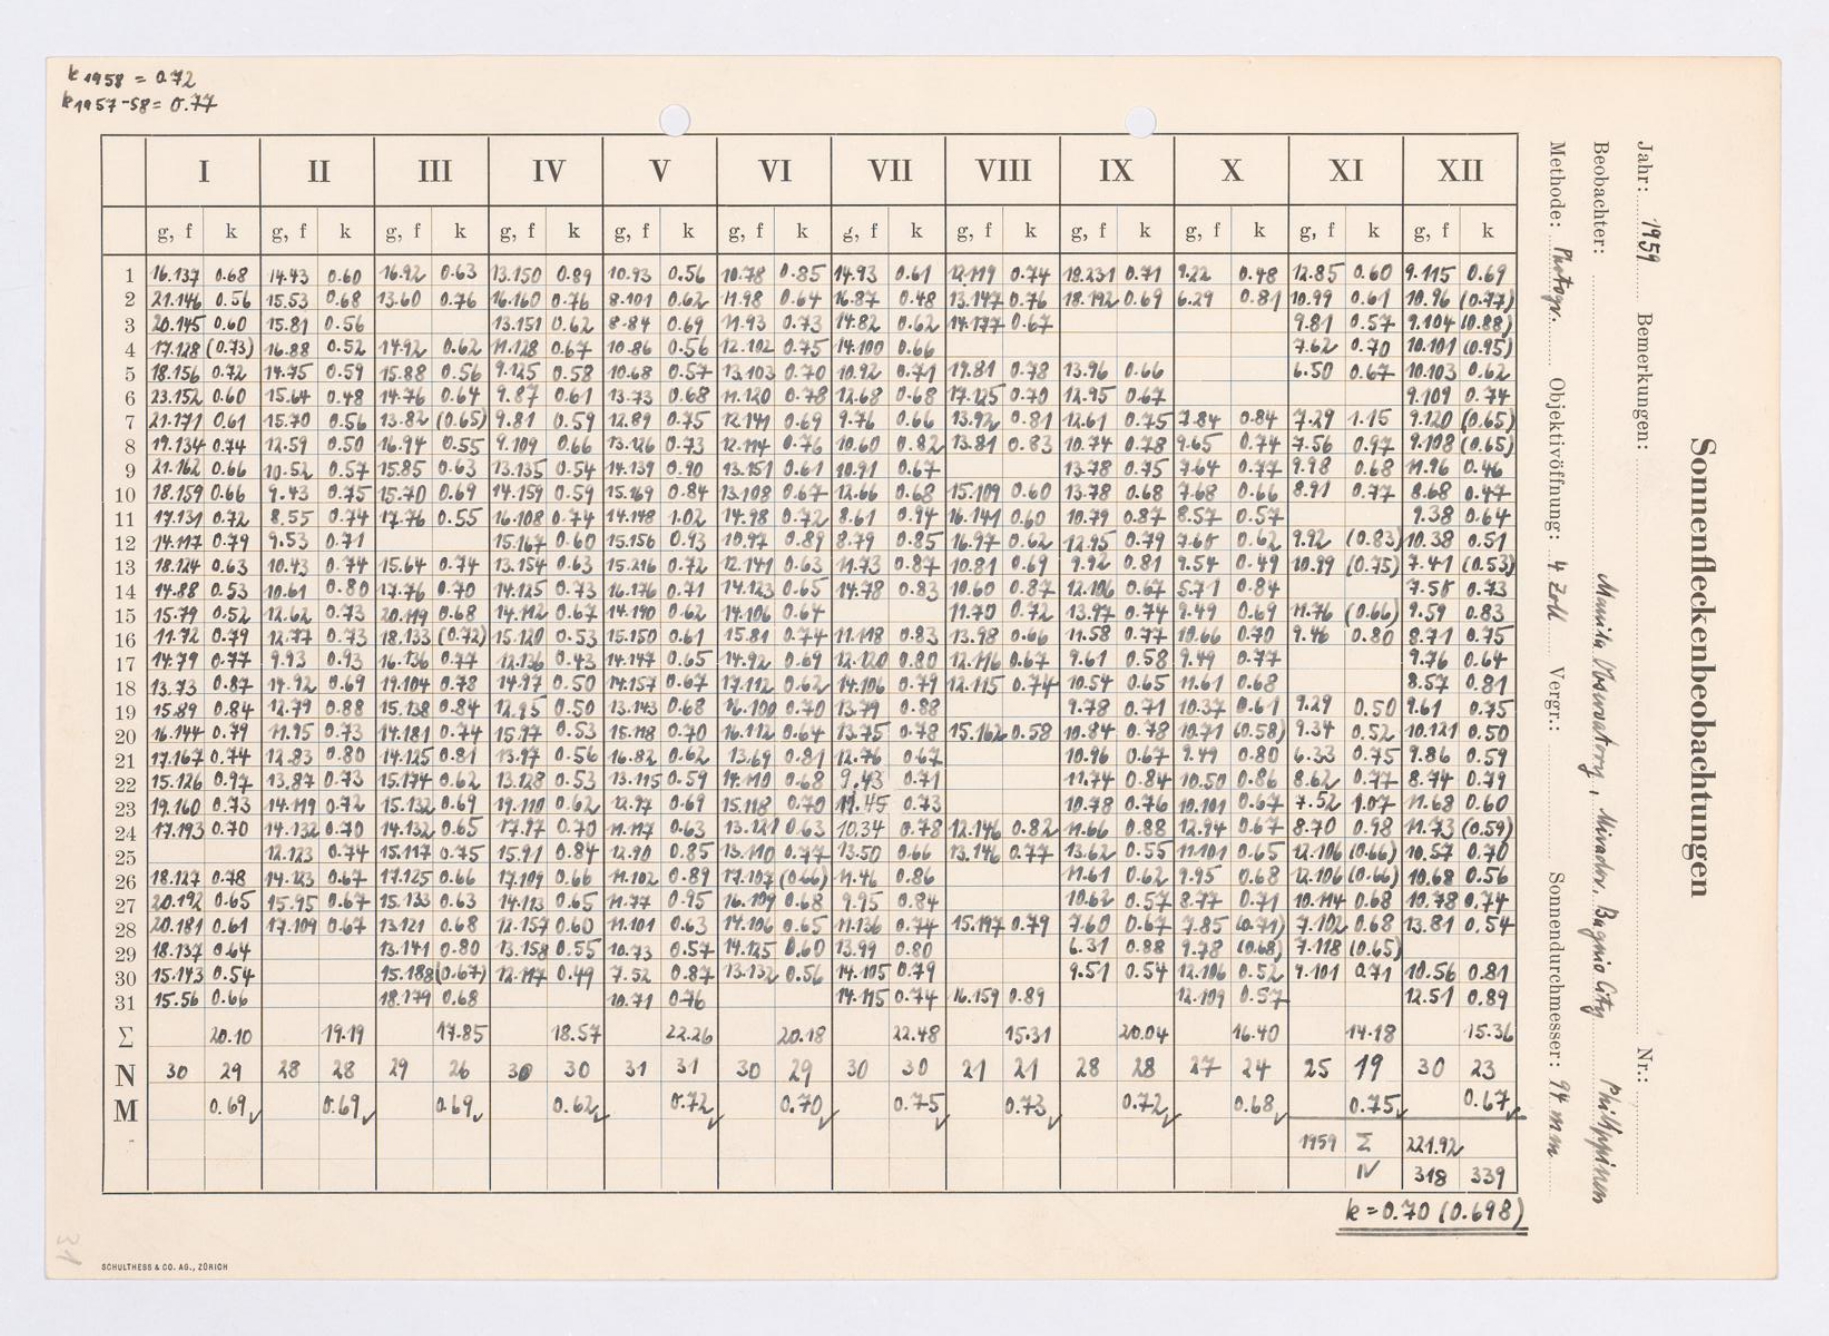 k 1958 = 0.72
k 1957-58 = 0.77
Sonnenfleckenbeobachtungen
Jahr: 1959 Bemerkungen: Nr.:
Beobachter: Manila Observatory, Mirador. Baguio City Philippinen
Methode: Photogr. Objektivöffnung: 4 Zoll Vergr.: Sonnendurchmesser: 94 mm
I II III IV V VI VII VIII IX X XI XII
g, f k g, f k g, f k g, f k g, f k g, f k g, f k g, f k g, f k g, f k g, f k g, f k
1 16.137 0.68 14.43 0.60 16.92 0.63 13.150 0.89 10.93 0.56 10.78 0.85 14.93 0.61 12.119 0.74 18.231 0.71 9.22 0.48 12.85 0.60 9.115 0.69
2 21.146 0.56 15.53 0.68 13.60 0.76 16.160 0.76 8.101 0.62 11.98 0.64 16.87 0.48 13.147 0.76 18.192 0.69 6.29 0.81 10.99 0.61 10.96 (0.77)
3 20.145 0.60 15.81 0.56 13.151 0.62 8.84 0.69 11.93 0.73 14.82 0.62 14.177 0.67 9.81 0.57 9.104 (0.88)
4 17.128 (0.73) 16.88 0.52 14.92 0.62 11.128 0.67 10.86 0.56 12.102 0.75 14.100 0.66 7.62 0.70 10.101 (0.95)
5 18.156 0.72 14.75 0.59 15.88 0.56 9.125 0.58 10.68 0.57 13.103 0.70 10.92 0.71 19.81 0.78 13.96 0.66 6.50 0.67 10.103 0.62
6 23.152 0.60 15.64 0.48 14.76 0.64 9.87 0.61 13.73 0.68 11.120 0.78 12.68 0.68 17.125 0.70 12.95 0.67 9.109 0.74
7 21.171 0.61 15.70 0.56 13.82 (0.65) 9.81 0.59 12.89 0.75 12.141 0.69 9.76 0.66 13.92 0.81 12.61 0.75 7.84 0.84 7.29 1.15 9.120 (0.65)
8 19.134 0.74 12.59 0.50 16.94 0.55 9.109 0.66 13.126 0.73 12.114 0.76 10.60 0.82 13.81 0.83 10.74 0.78 9.65 0.74 7.56 0.97 9.108 (0.65)
9 21.162 0.66 10.52 0.57 15.85 0.63 13.135 0.54 14.139 0.90 13.151 0.61 10.91 0.67 13.78 0.75 7.64 0.77 9.98 0.68 11.96 0.46
10 18.159 0.66 9.43 0.75 15.70 0.69 14.159 0.59 15.169 0.84 13.108 0.67 12.66 0.68 15.109 0.60 13.78 0.68 7.68 0.66 8.91 0.77 8.68 0.47
11 17.131 0.72 8.55 0.74 17.76 0.55 16.108 0.74 14.148 1.02 14.98 0.72 8.61 0.94 16.141 0.60 10.79 0.87 8.57 0.57 9.38 0.64
12 14.117 0.79 9.53 0.71 15.167 0.60 15.156 0.93 10.97 0.89 8.79 0.85 16.97 0.62 12.95 0.79 7.60 0.62 9.92 (0.83) 10.38 0.51
13 18.124 0.63 10.43 0.74 15.64 0.74 13.154 0.63 15.216 0.72 12.141 0.63 11.73 0.87 10.81 0.69 9.92 0.81 9.54 0.49 10.99 (0.75) 7.41 (0.53)
14 14.88 0.53 10.61 0.80 17.76 0.70 14.125 0.73 16.176 0.71 14.123 0.65 14.78 0.83 10.60 0.87 12.106 0.67 5.71 0.84 7.58 0.73
15 15.79 0.52 12.62 0.73 20.119 0.68 14.112 0.67 14.190 0.62 14.106 0.64 11.70 0.72 13.97 0.74 9.49 0.69 11.76 (0.66) 9.59 0.83
16 11.72 0.79 12.77 0.73 18.133 (0.72) 15.120 0.53 15.150 0.61 15.81 0.74 11.118 0.83 13.98 0.66 11.58 0.77 10.66 0.70 9.46 0.80 8.71 0.75
17 14.79 0.77 9.93 0.93 16.136 0.77 12.136 0.43 14.147 0.65 14.92 0.69 12.120 0.80 12.116 0.67 9.61 0.58 9.49 0.77 9.76 0.64
18 13.73 0.87 14.92 0.69 19.104 0.78 14.97 0.50 14.157 0.67 17.112 0.62 14.106 0.79 12.115 0.74 10.54 0.65 11.61 0.68 8.57 0.81
19 15.89 0.84 12.79 0.88 15.138 0.84 12.95 0.50 13.143 0.68 16.100 0.70 13.79 0.88 9.78 0.71 10.37 0.61 9.29 0.50 9.61 0.75
20 16.144 0.79 11.95 0.73 14.181 0.74 15.97 0.53 15.118 0.70 16.112 0.64 13.75 0.78 15.162 0.58 10.84 0.78 10.71 (0.58) 9.34 0.52 10.121 0.50
21 17.167 0.74 12.83 0.80 14.125 0.81 13.97 0.56 16.82 0.62 13.69 0.81 12.76 0.67 10.96 0.67 9.49 0.80 6.33 0.75 9.86 0.59
22 15.126 0.97 13.87 0.73 15.174 0.62 13.128 0.53 13.115 0.59 14.110 0.68 9.43 0.71 11.74 0.84 10.50 0.86 8.62 0.77 8.74 0.79
23 19.160 0.73 14.119 0.72 15.132 0.69 19.110 0.62 12.97 0.69 15.118 0.70 11.45 0.73 10.78 0.76 10.101 0.67 7.52 1.07 11.68 0.60
24 17.193 0.70 14.132 0.70 14.132 0.65 17.97 0.70 11.117 0.63 13.121 0.63 10.34 0.78 12.146 0.82 11.66 0.88 12.94 0.67 8.70 0.98 11.73 (0.59)
25 12.123 0.74 15.117 0.75 15.91 0.84 12.90 0.85 13.110 0.77 13.50 0.66 13.146 0.77 13.62 0.55 11.101 0.65 12.106 (0.66) 10.57 0.70
26 18.127 0.78 14.123 0.67 17.125 0.66 17.109 0.66 11.102 0.89 17.107 (0.66) 11.46 0.86 11.61 0.62 9.95 0.68 12.106 (0.66) 10.68 0.56
27 20.192 0.65 15.95 0.67 15.133 0.63 14.113 0.65 11.77 0.95 16.109 0.68 9.95 0.84 10.62 0.57 8.77 0.71 10.114 0.68 10.78 0.74
28 20.181 0.61 17.109 0.67 13.121 0.68 12.157 0.60 11.101 0.63 14.106 0.65 11.136 0.74 15.197 0.79 7.60 0.67 7.85 (0.71) 7.102 0.68 13.81 0.54
29 18.137 0.64 13.141 0.80 13.158 0.55 10.73 0.57 14.125 0.60 13.99 0.80 6.31 0.88 9.78 (0.68) 7.118 (0.65)
30 15.143 0.54 15.188 (0.67) 12.117 0.49 7.52 0.87 13.132 0.56 14.105 0.79 9.51 0.54 12.106 0.52 9.101 0.71 10.56 0.81
31 15.56 0.66 18.179 0.68 10.71 0.76 14.115 0.74 16.159 0.89 12.109 0.57 12.51 0.89
Σ 20.10 19.19 17.85 18.57 22.26 20.18 22.48 15.31 20.04 16.40 14.18 15.36
N 30 29 28 28 29 26 30 30 31 31 30 29 30 30 21 21 28 28 27 24 25 19 30 23
M 0.69 0.69 0.69 0.62 0.72 0.70 0.75 0.73 0.72 0.68 0.75 0.67
1959 Σ 221.92
N 318 339
k = 0.70 (0.698)
31
SCHULTHESS & CO. AG., ZÜRICH